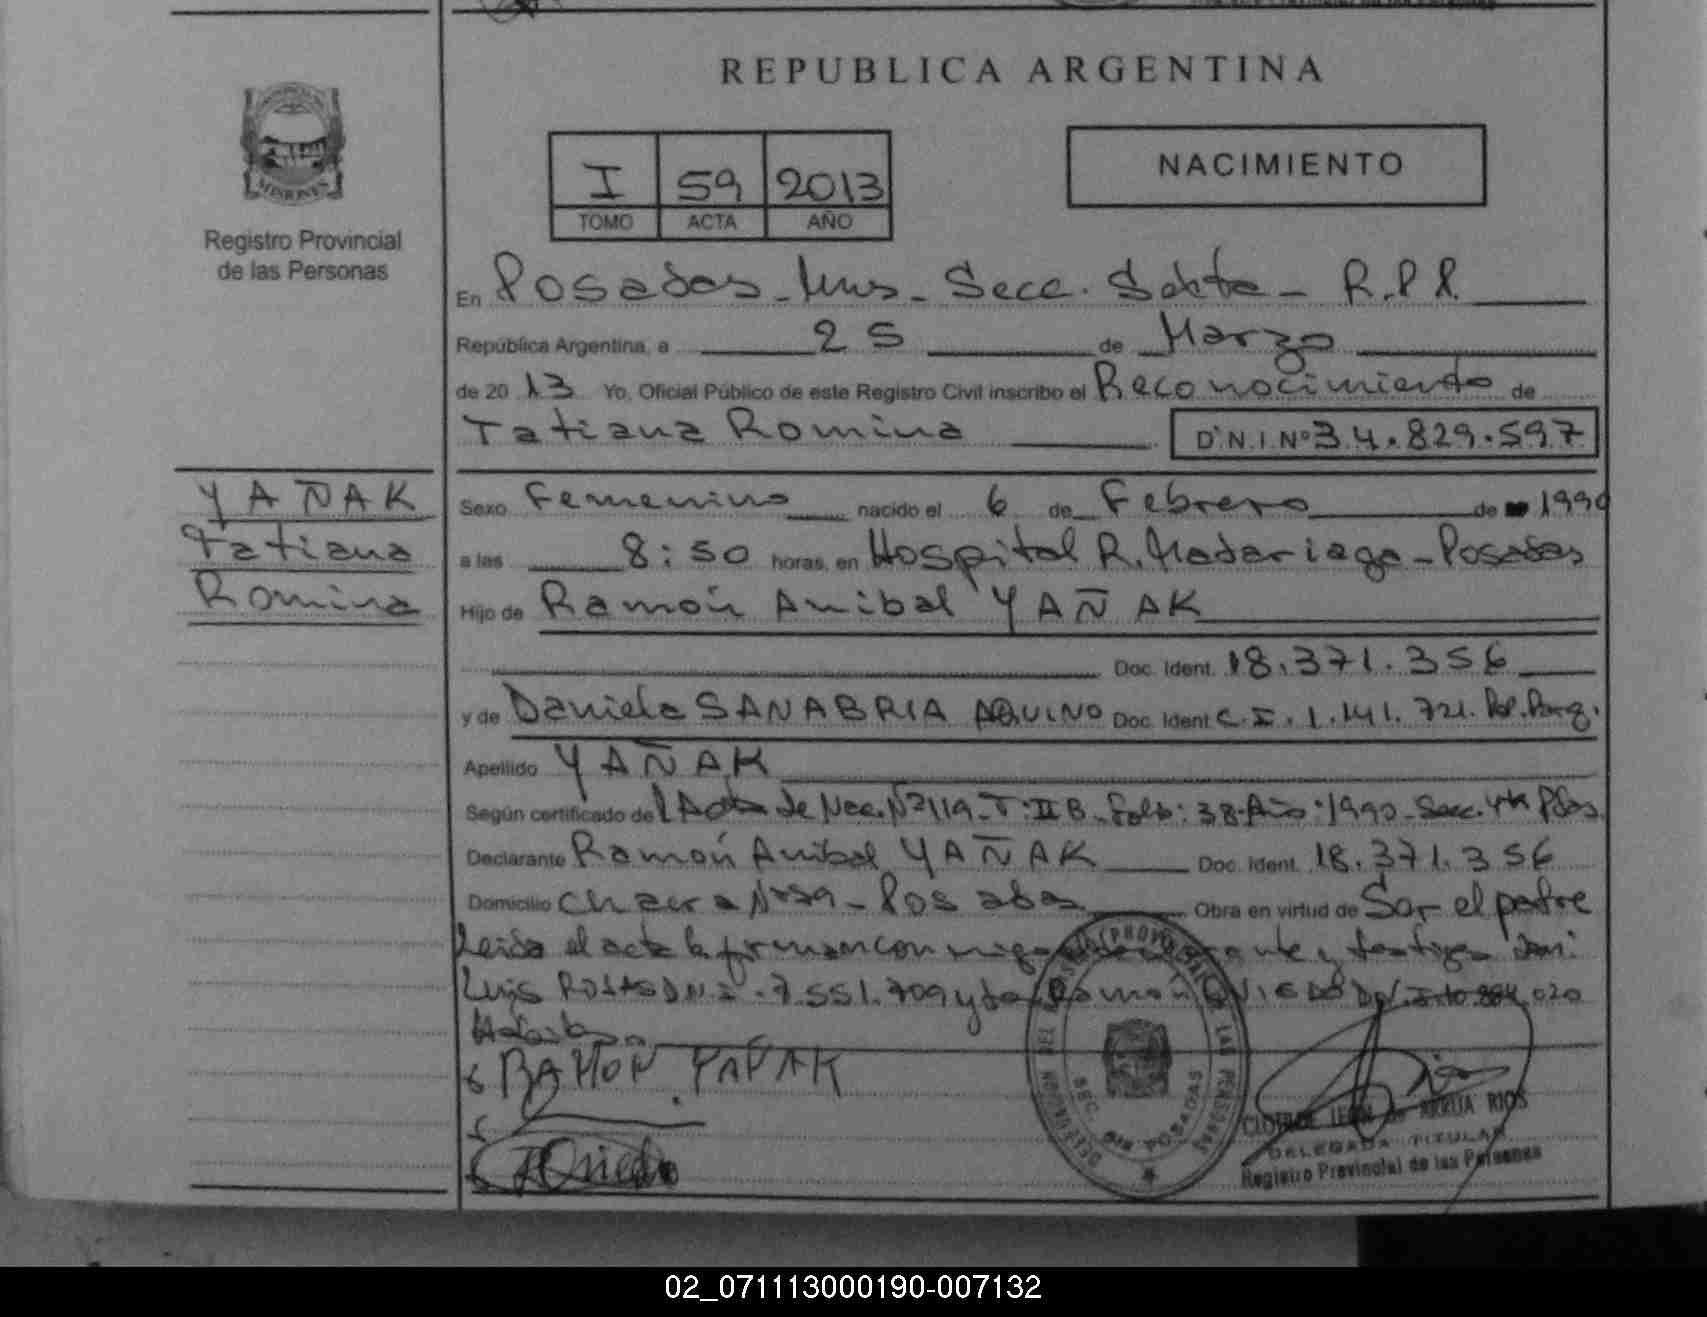 REPUBLICA ARGENTINA
MISIONES
Registro Provincial
de las Personas
I 59 2013
TOMO ACTA AÑO
NACIMIENTO
En Posadas - Mns - Secc. Sexta - R.P.P.
República Argentina, a 25 de Marzo
de 2013 Yo, Oficial Público de este Registro Civil inscribo el Reconocimiento de
Tatiana Romina D.N.I.Nº 34.829.597
YAÑAK
Tatiana
Romina
Sexo Femenino nacido el 6 de Febrero de 1990
a las 8:50 horas, en Hospital R. Madariaga - Posadas
Hijo de Ramón Anibal YAÑAK
Doc. Ident. 18.371.356
y de Daniela SANABRIA AQUINO Doc. Ident C.I. 1.141.721. Pol. Parg.
Apellido YAÑAK
Según certificado de Acta de Nac. Nº 119 - T: II B - Folio: 38 - Año: 1990 - Secc. 4ta Pdas.
Declarante Ramón Anibal YAÑAK Doc. Ident. 18.371.356
Domicilio Chacra Nº 39 - Posadas Obra en virtud de Ser el padre
Leida el acta la firman conmigo y testigos
Luis DNI. 7.551.709 y Ramón OVIEDO 020
RAMON YAÑAK
Oviedo
DELEGACION DEL REGISTRO PROVINCIAL DE LAS PERSONAS
SEC. 6ta POSADAS
CLOTILDE LEON de ARRUA RIOS
DELEGADA TITULAR
Registro Provincial de las Personas
02_071113000190-007132